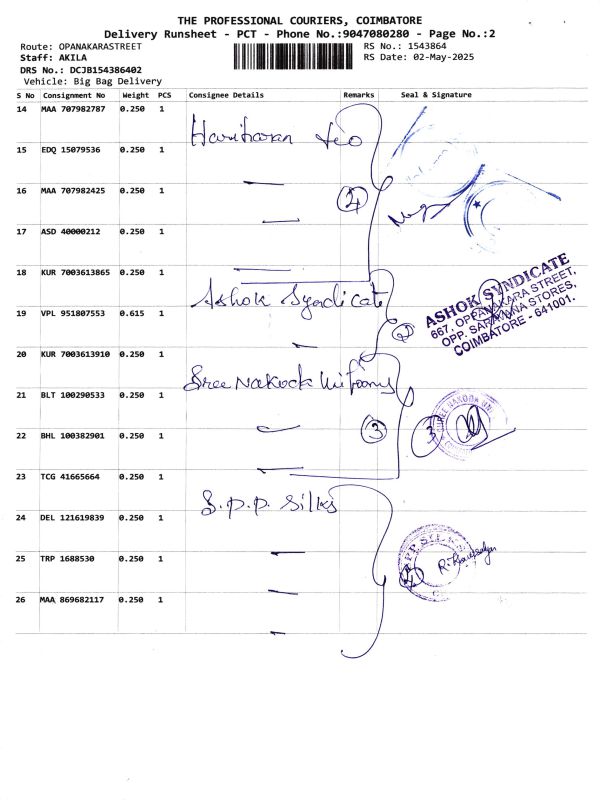 THE PROFESSIONAL COURIERS, COIMBATORE
Delivery Runsheet - PCT - Phone No.:9047080280 - Page No.:2
Route: OPANAKARASTREET
RS No.: 1543864
Staff: AKILA
RS Date: 02-May-2025
DRS No.: DCJB154386402
Vehicle: Big Bag Delivery
S No Consignment No Weight PCS Consignee Details Remarks Seal & Signature
14 MAA 707982787 0.250 1
Hariharan
15 EDQ 15079536 0.250 1
16 MAA 707982425 0.250 1
4
17 ASD 40000212 0.250 1
18 KUR 7003613865 0.250 1
Ashok Syndicate
ASHOK SYNDICATE
667, OPPANAKARA STREET,
OPP. SARAVANA STORES,
COIMBATORE - 641001.
19 VPL 951807553 0.615 1
2
20 KUR 7003613910 0.250 1
Sree Nakoda Uniforms
21 BLT 100290533 0.250 1
22 BHL 100382901 0.250 1
3 3
23 TCG 41665664 0.250 1
S.P.P. Silks
24 DEL 121619839 0.250 1
25 TRP 1688530 0.250 1
4
26 MAA 869682117 0.250 1